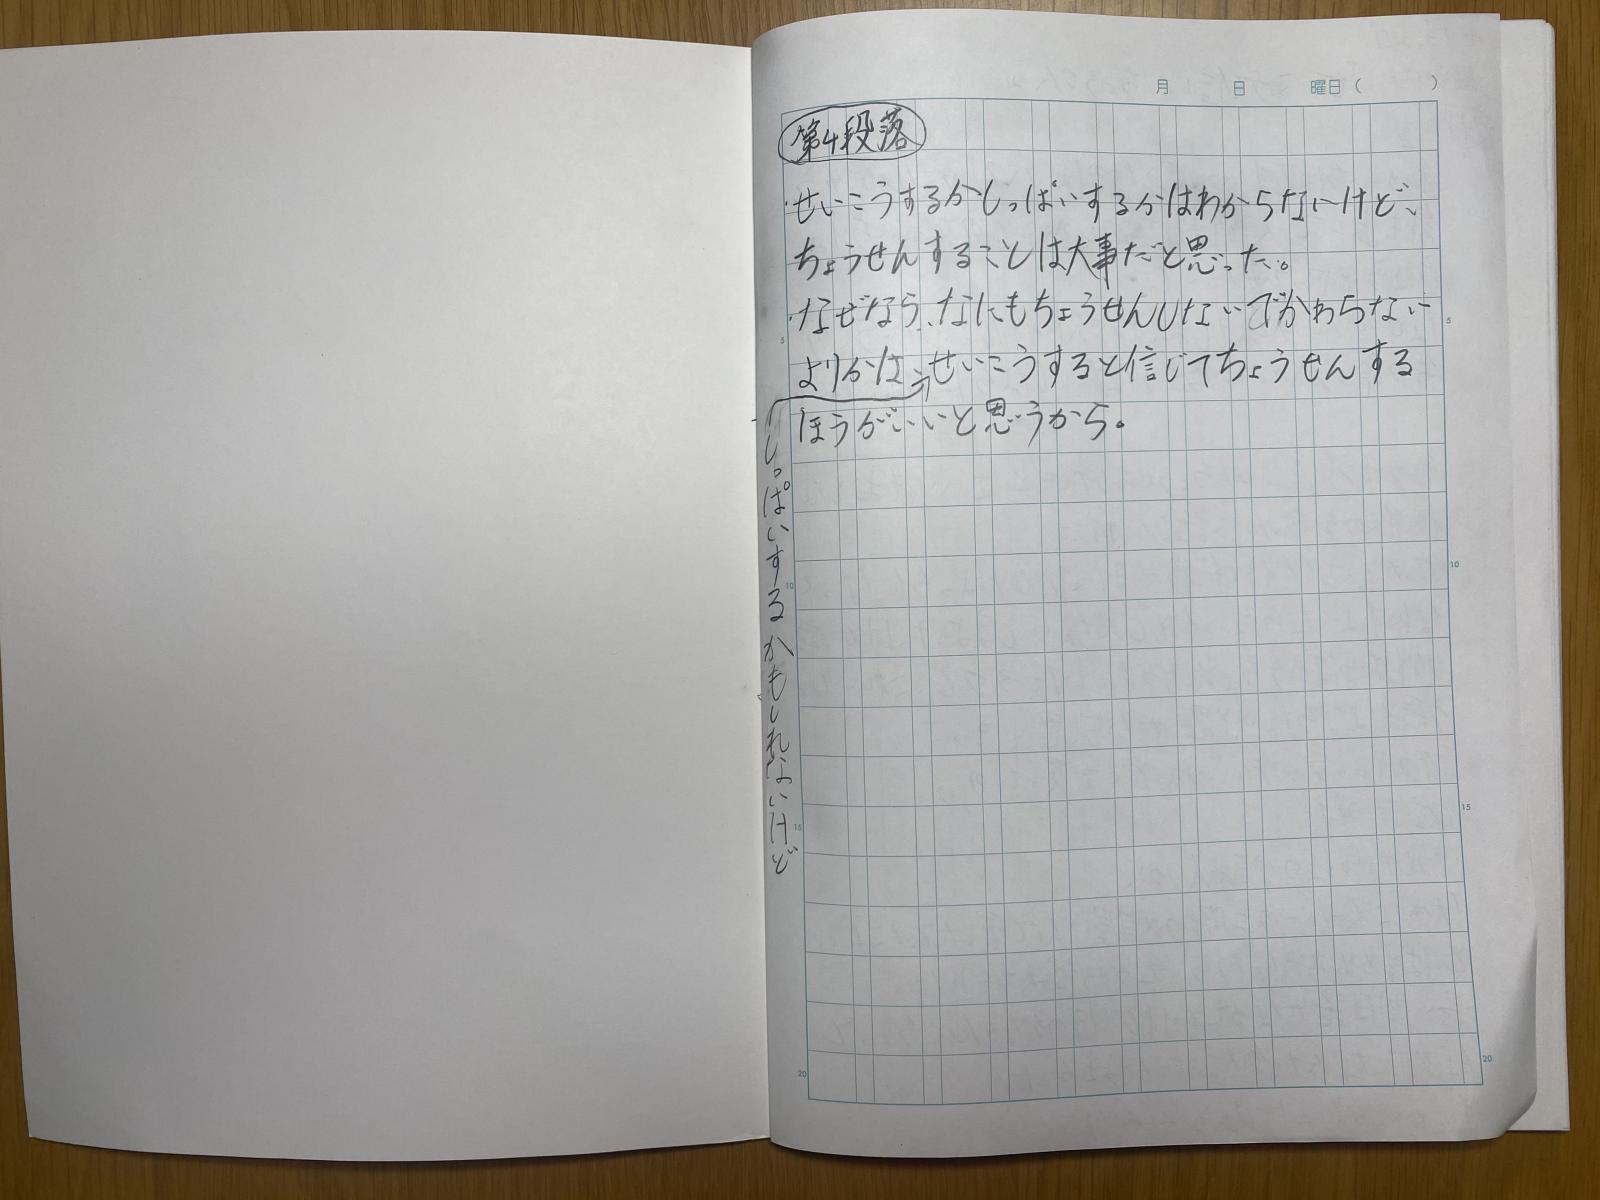 月 日 曜日( )
第4段落
・せいこうするかしっぱいするかはわからないけど、
ちょうせんすることは大事だと思った。
・なぜなら、なにもちょうせんしないでかわらない
よりかは、せいこうすると信じてちょうせんする
ほうがいいと思うから。
しっぱいするかもしれないけど
5
10
15
20
5
10
15
20